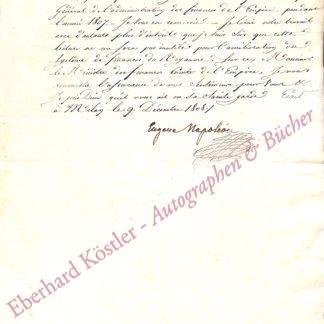 Général de l'administration des finances de l'Empire, pendant
l'année 1807. Je vous en remercie — Je lirai votre travail
avec d'autant plus d'intérêt que je suis sûr que cette
lecture ne me sera pas inutile pour l'amélioration du
Système de finances du Royaume. Sur ce, Monsieur
le Ministre des finances, Comte de l'Empire, Je vous
renouvelle l'assurance de mes Sentimens pour vous &
Je prie Dieu qu'il vous ait en sa Sainte garde. Ecrit
à Milan le 9 Décembre 1808 /
Eugène Napoléon
Eberhard Köstler - Autographen & Bücher